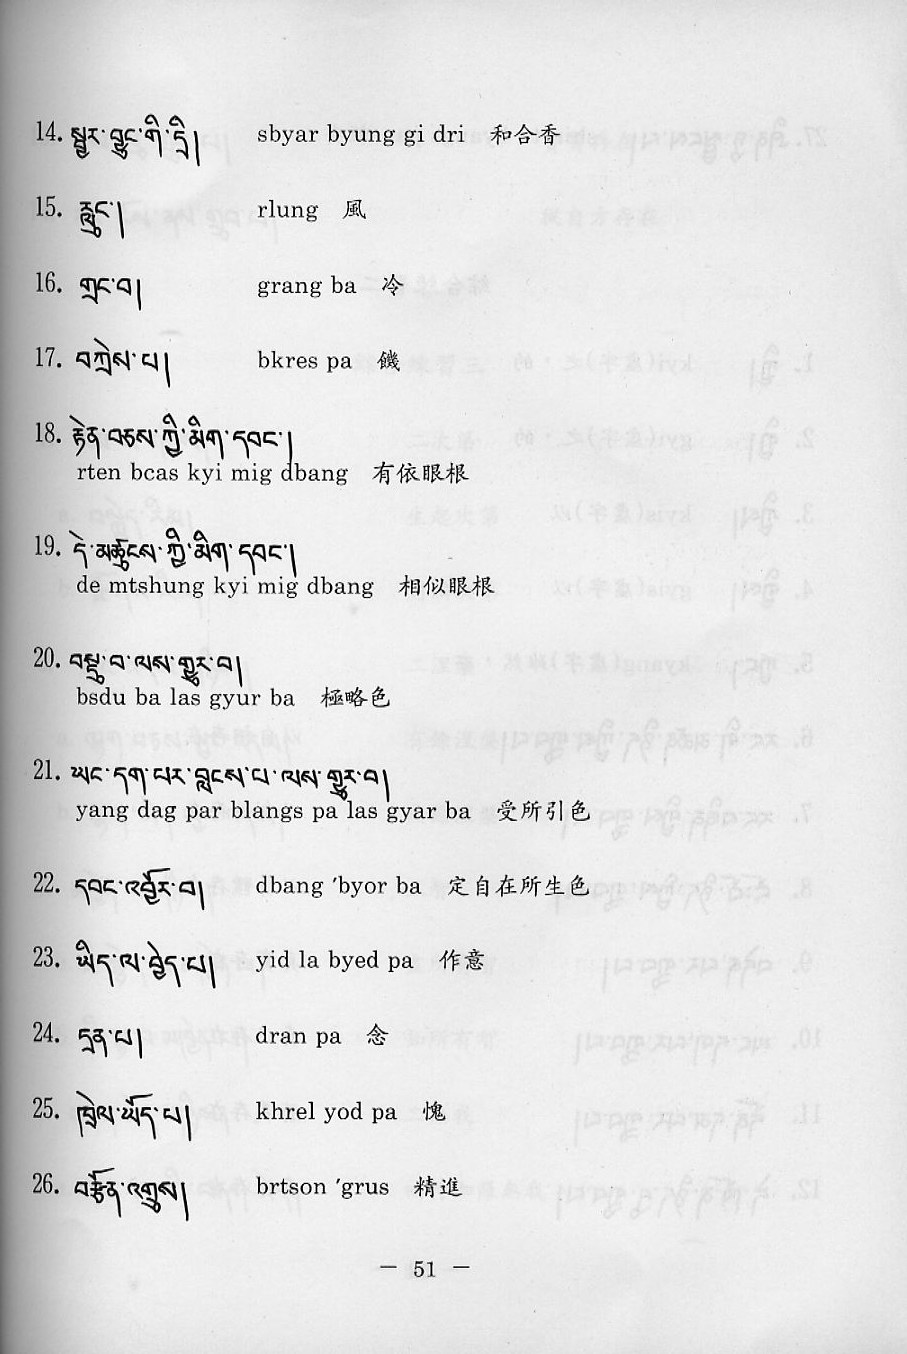 14. སྦྱར་བྱུང་གི་དྲི། sbyar byung gi dri 和合香
15. རླུང་། rlung 風
16. གྲང་བ། grang ba 冷
17. བཀྲེས་པ། bkres pa 饑
18. རྟེན་བཅས་ཀྱི་མིག་དབང་།
rten bcas kyi mig dbang 有依眼根
19. དེ་མཚུངས་ཀྱི་མིག་དབང་།
de mtshung kyi mig dbang 相似眼根
20. བསྡུ་བ་ལས་གྱུར་བ།
bsdu ba las gyur ba 極略色
21. ཡང་དག་པར་བླངས་པ་ལས་གྱུར་བ།
yang dag par blangs pa las gyar ba 受所引色
22. དབང་འབྱོར་བ། dbang 'byor ba 定自在所生色
23. ཡིད་ལ་བྱེད་པ། yid la byed pa 作意
24. དྲན་པ། dran pa 念
25. ཁྲེལ་ཡོད་པ། khrel yod pa 愧
26. བརྩོན་འགྲུས། brtson 'grus 精進
— 51 —